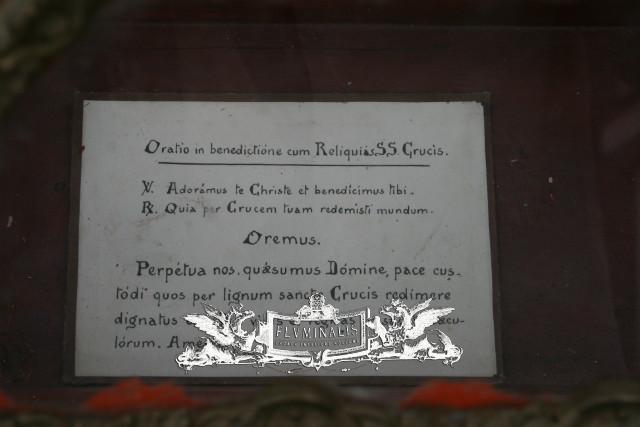 Oratio in benedictióne cum Reliquiis S.S. Crucis.
℣. Adorámus te Christe et benedícimus tibi.
℟. Quia per Crucem tuam redemisti mundum.
Oremus.
Perpétua nos, quǽsumus Dómine, pace cus-
tódi quos per lignum sanctæ Crucis redímere
dignatus
lórum. Amen
FLVMINALIS